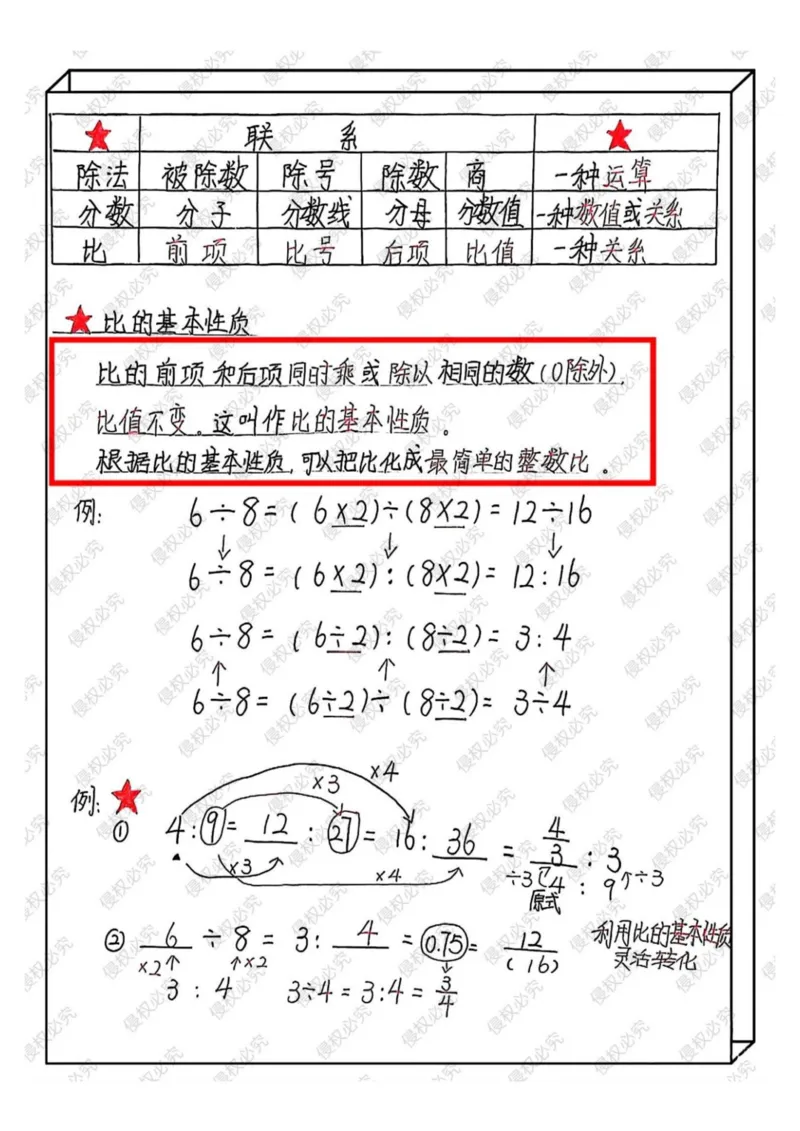 联 系
除法 被除数 除号 除数 商 一种运算
分数 分子 分数线 分母 分数值 一种数值或关系
比 前项 比号 后项 比值 一种关系
比的基本性质
比的前项和后项同时乘或除以相同的数(0除外),
比值不变。这叫作比的基本性质。
根据比的基本性质,可以把比化成最简单的整数比。
例: 6÷8=(6×2)÷(8×2)=12÷16
↓ ↓ ↓
6÷8=(6×2):(8×2)=12:16
6÷8=(6÷2):(8÷2)=3:4
↑ ↑ ↑
6÷8=(6÷2)÷(8÷2)=3÷4
例:
×3 ×4
① 4:9=12:27=16:36=4/3:3
×3 ×4 ÷3 4:9 ÷3
原式
② 6÷8=3:4=0.75=12/(16)
×2↑ ↑×2 ↓
3:4 3÷4=3:4=3/4
利用比的基本性质
灵活转化
侵权必究